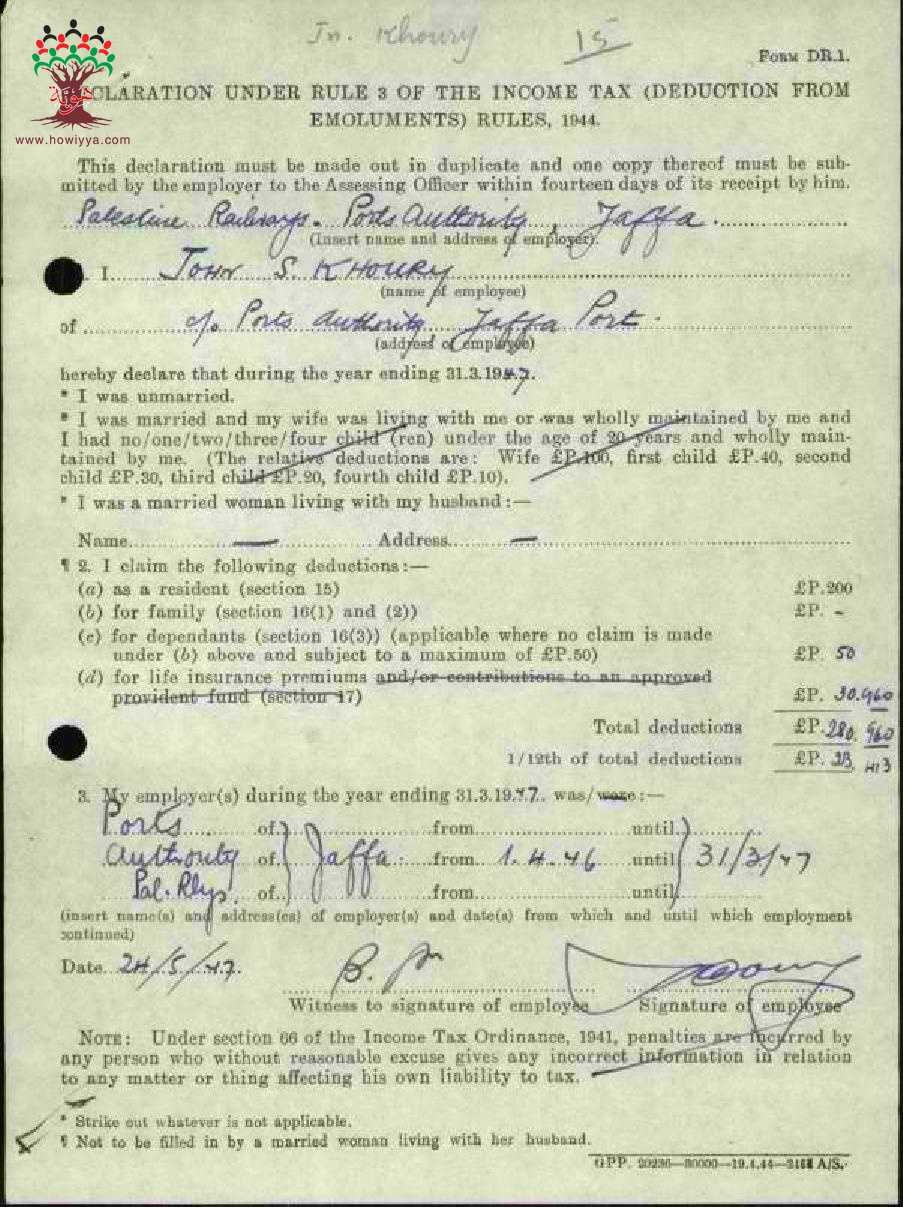 Jn. Khoury 15
FORM DR.1.
CLARATION UNDER RULE 3 OF THE INCOME TAX (DEDUCTION FROM
EMOLUMENTS) RULES, 1944.
www.howiyya.com
This declaration must be made out in duplicate and one copy thereof must be sub-
mitted by the employer to the Assessing Officer within fourteen days of its receipt by him.
Palestine Railways. Ports Authority, Jaffa.
(Insert name and address of employer).
I John S. KHOURY
(name of employee)
of c/o Ports Authority Jaffa Port.
(address of employee)
hereby declare that during the year ending 31.3.1947.
* I was unmarried.
* I was married and my wife was living with me or was wholly maintained by me and
I had no/one/two/three/four child (ren) under the age of 20 years and wholly main-
tained by me. (The relative deductions are: Wife £P.100, first child £P.40, second
child £P.30, third child £P.20, fourth child £P.10).
* I was a married woman living with my husband:—
Name — Address —
¶ 2. I claim the following deductions:—
(a) as a resident (section 15) £P.200
(b) for family (section 16(1) and (2)) £P. -
(c) for dependants (section 16(3)) (applicable where no claim is made
under (b) above and subject to a maximum of £P.50) £P. 50
(d) for life insurance premiums and/or contributions to an approved
provident fund (section 17) £P. 30.960
Total deductions £P.280.960
1/12th of total deductions £P. 23. 413
3. My employer(s) during the year ending 31.3.1947. was/were:—
Ports of from until
Authority of Jaffa. from 1.4.46 until 31/3/47
Pal. Rlys of from until
(insert name(s) and address(es) of employer(s) and date(s) from which and until which employment
continued)
Date 24/5/47.
Witness to signature of employee Signature of employee
NOTE: Under section 66 of the Income Tax Ordinance, 1941, penalties are incurred by
any person who without reasonable excuse gives any incorrect information in relation
to any matter or thing affecting his own liability to tax.
* Strike out whatever is not applicable.
¶ Not to be filled in by a married woman living with her husband.
GPP. 20236—80000—19.4.44—
A/S.